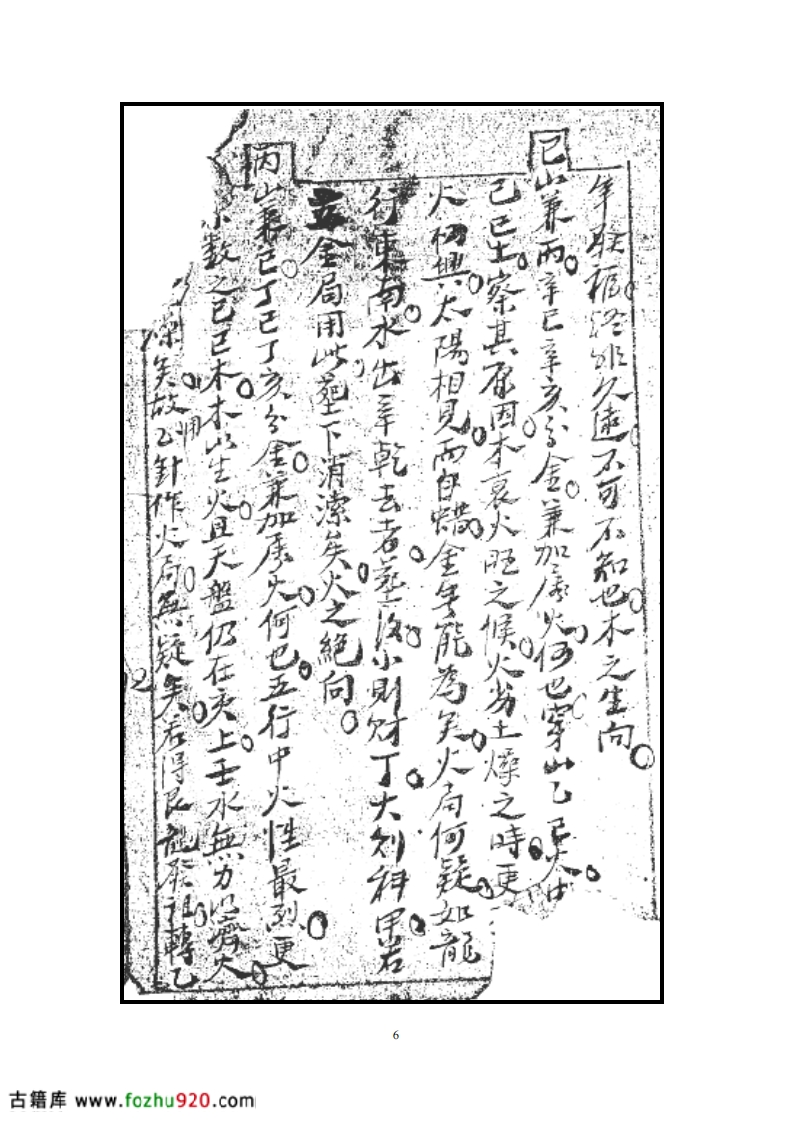 年耿福澄雖久遠不可不知也木之生向
巳山兼丙辛巳辛亥分金兼加屬火何也穿山乙巳火
己巳土察其原因木衰火旺之候火炎土燥之時更
火初興太陽相見而白蠟金害能為矣火局何疑如龍
行東南水出辛乾去者葬後小則財丁大則科甲若
立金局用此葬下消索矣火之絕向
丙山兼巳丁巳丁亥分金兼加屬火何也五行中火性最烈更
小數之己巳木木以生火且天盤仍在炎上壬水無力以濟火
矣故乙針作火局無疑矣若得艮龍發祖轉乙
用
6
古籍库 www.fozhu920.com